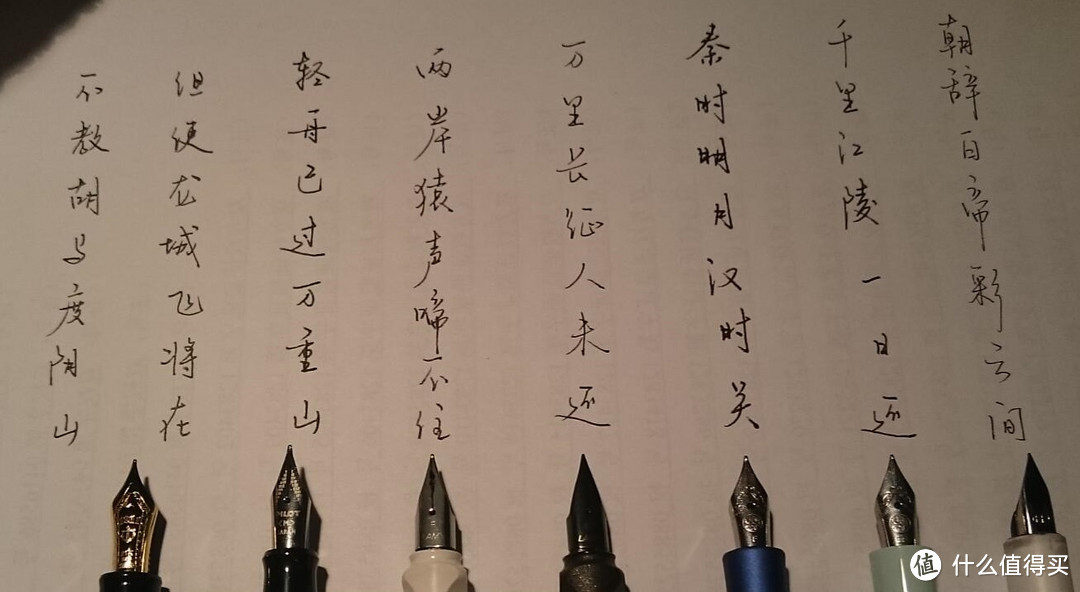 朝辞白帝彩云间
千里江陵一日还
秦时明月汉时关
万里长征人未还
两岸猿声啼不住
轻舟已过万重山
但使龙城飞将在
不教胡马度阴山
PILOT
值 什么值得买